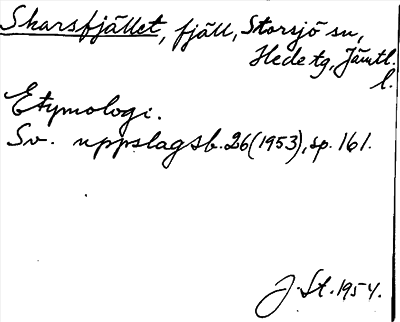 Skarsfjället, fjäll, Storsjö sn,
Hede tg, Jämtl.
l.
Etymologi.
Sv. uppslagsb. 26 (1953), sp. 161.
J. St. 1954.